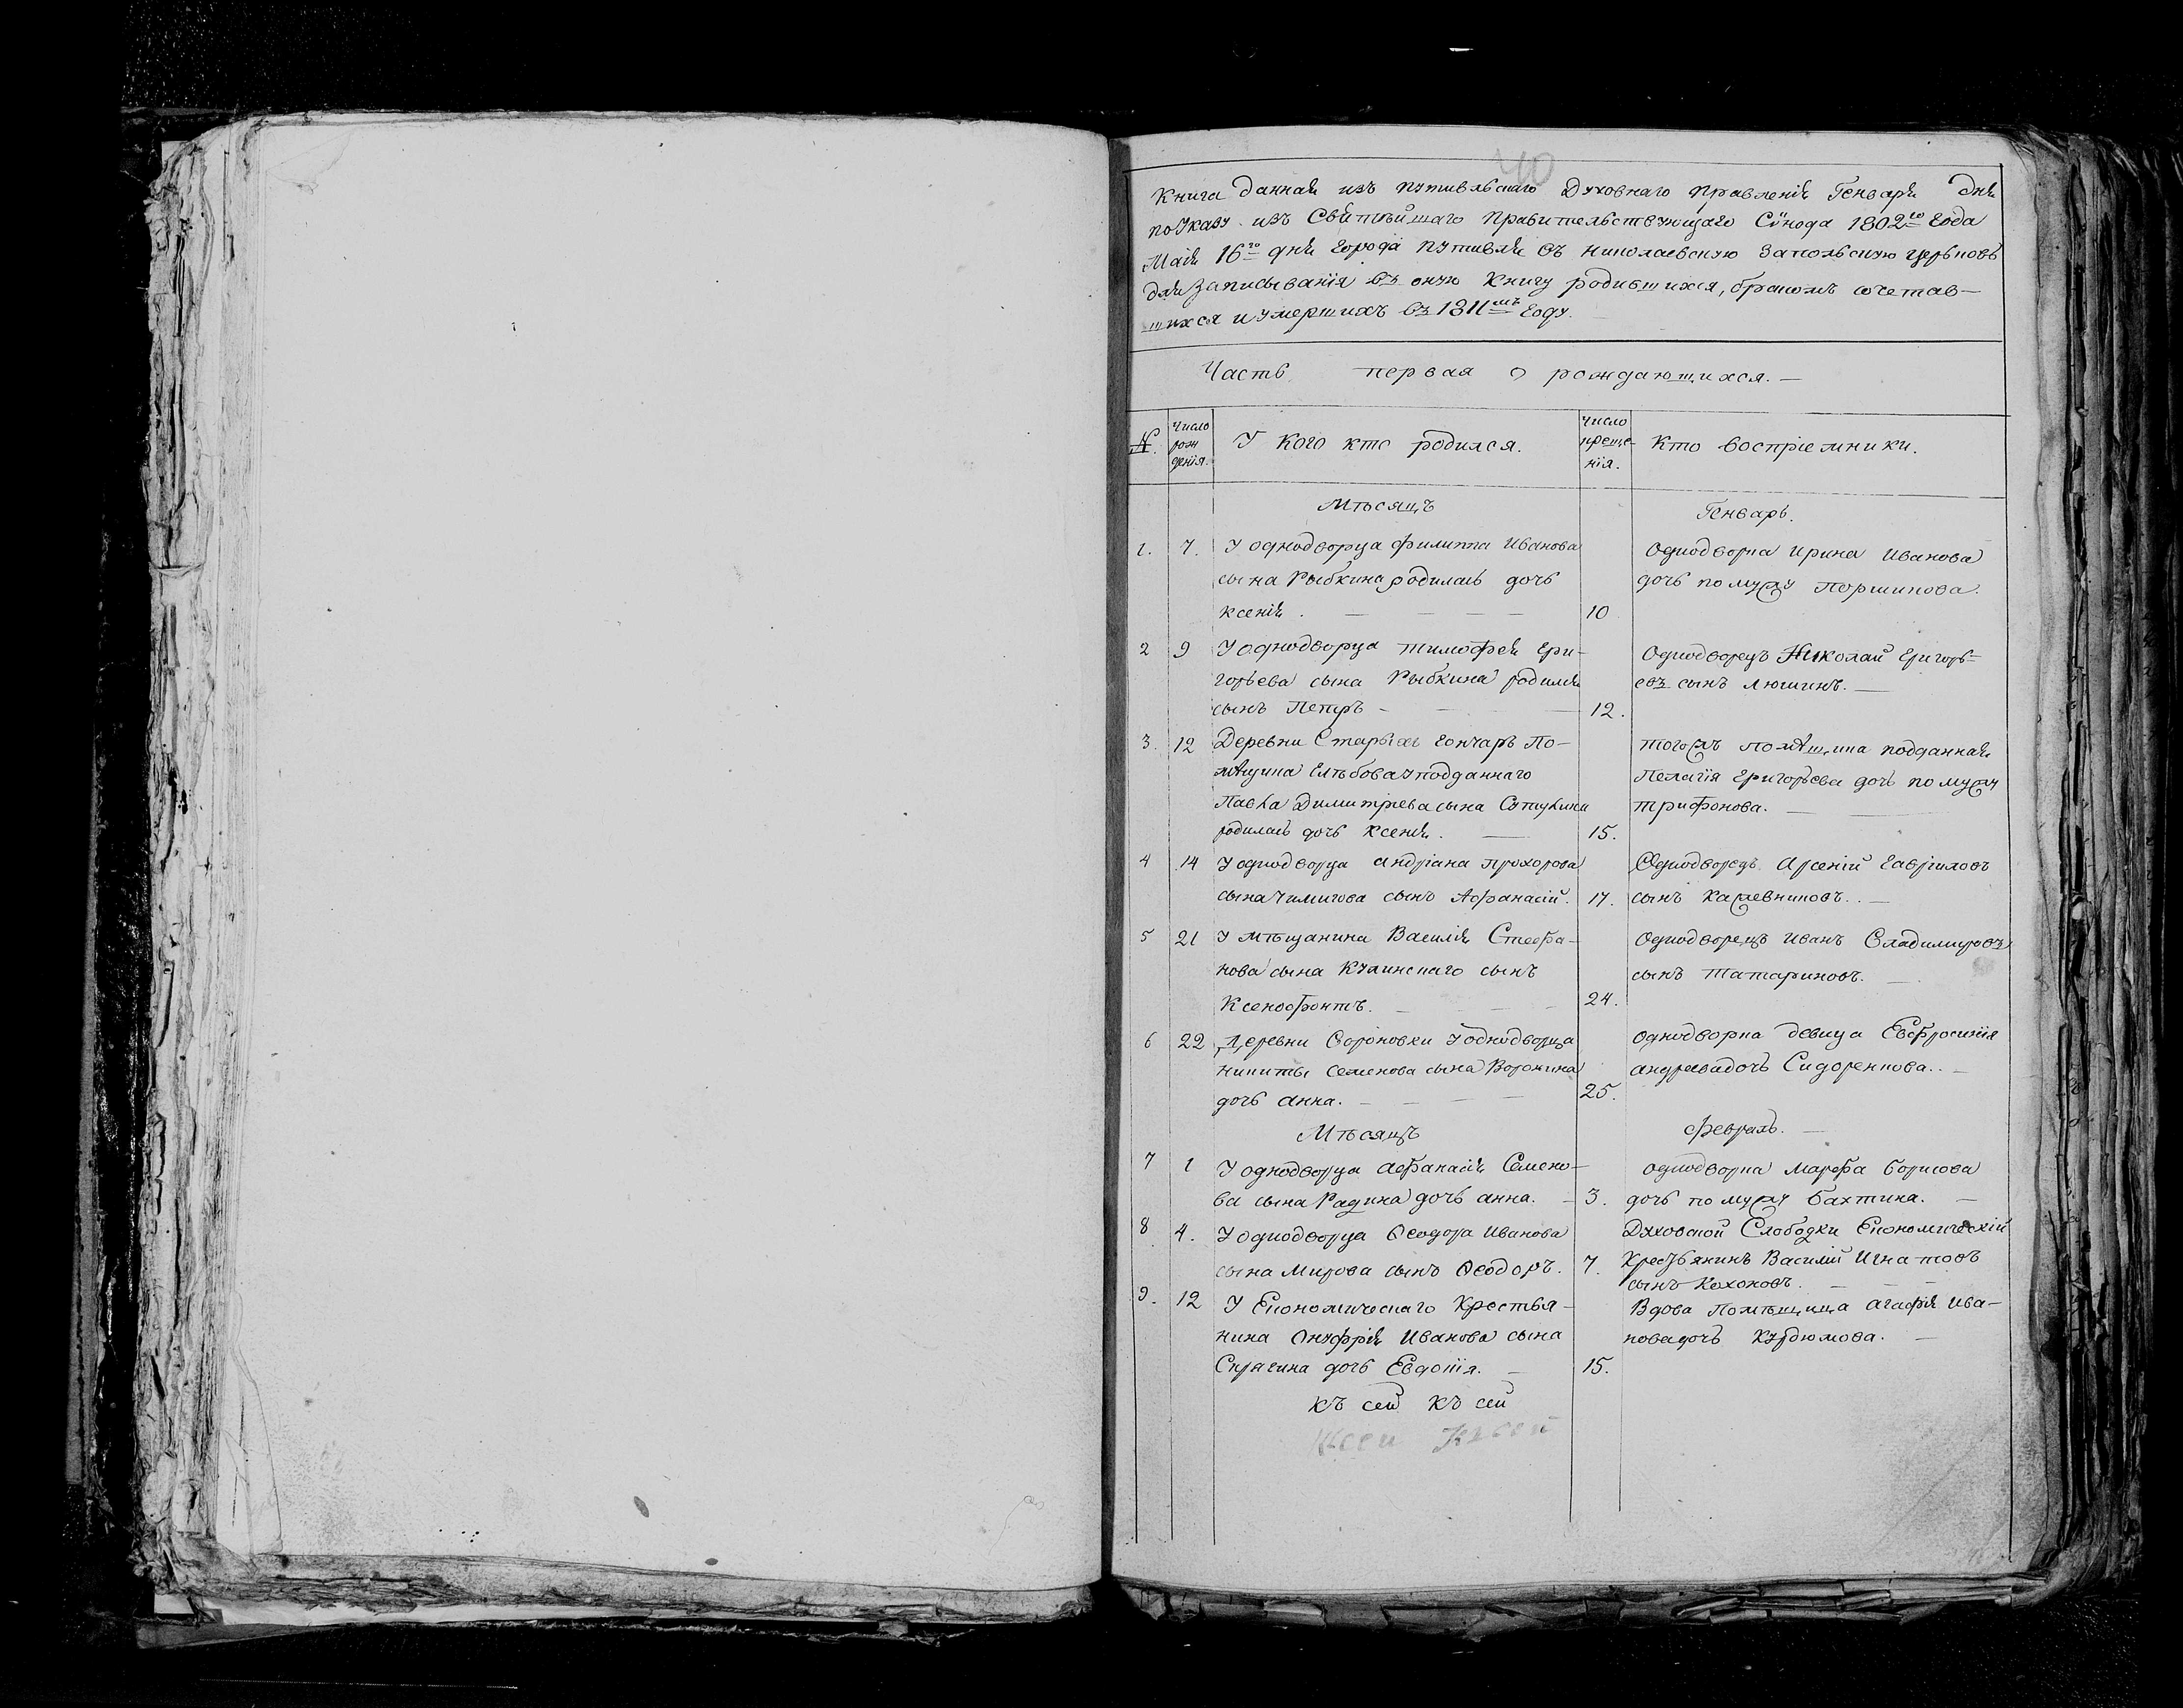 40
Книга данная изъ Путивльскаго Духовнаго Правленія Генваря дня
по Указу изъ Святѣйшаго Правительствующаго Сѵнода 1802го года
Маія 16го дня города Путивля въ Николаевскую Запольскую церьковь
для записыванія въ оную книгу родившихся, бракомъ сочетав-
шихся и умершихъ въ 1811мъ году.
Часть первая о рождающихся.
№. Число рож денія. У кого кто родился. Число креще- нія. Кто воспріемники.
Мѣсяцъ Генварь.
1. 7. У однодворца Филиппа Иванова Однодворка Ирина Иванова
сына Рыбкина родилась дочь дочь по мужу Поршикова.
Ксенія. 10
2 9 У однодворца Тимофея Гри- Однодворецъ Николай Григорь-
горьева сына Рыбкина родился евъ сынъ Люшинъ.
сынъ Петръ 12.
3. 12 Деревни Старыхъ Гончаръ По- Тогожъ помѣщика подданная
мѣщика Глѣбова у подданнаго Пелагія Григорьева дочь по мужу
Павла Димитріева сына Трифонова.
родилась дочь Ксенія. 15.
4 14 У однодворца Андріана Прохорова Однодворецъ Арсеній Гавриловъ
сына Чимигова сынъ Афанасій. 17. сынъ Кажевниковъ.
5 21 У мѣщанина Василія Стефа- Однодворецъ Иванъ Владимировъ
нова сына сынъ сынъ Татариновъ.
Ксенофонтъ. 24.
6 22 Деревни Вороновки У однодворца Однодворка девица Евфросинія
Никиты Семенова сына Воронина Андреева дочь Сидоренкова.
дочь Анна. 25.
Мѣсяцъ Февраль.
7 1 У однодворца Афанасія Семено- Однодворка Марфа Борисова
ва сына Радина дочь Анна. 3. дочь по мужу Бахтина.
8 4. У однодворца Ѳеодора Иванова Духовской Слободки Економическій
сына Мирова сынъ Ѳеодоръ. 7. Крестьянинъ Василій Игнатовъ
сынъ Кохоновъ.
9. 12 У Економическаго Крестья- Вдова Помѣщица Агафія Ива-
нина Онуфрія Иванова сына нова дочь Курдюмова.
Спрягина дочь Евдокія. 15.
Къ сей Къ сей
Ксей Къ сей